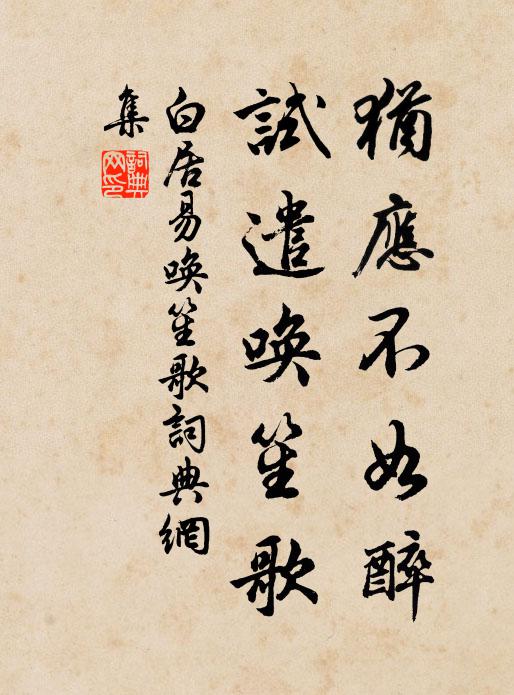 猶應不如醉
試遣喚笙歌
白居易喚笙歌詞典網
集
詞典
网印